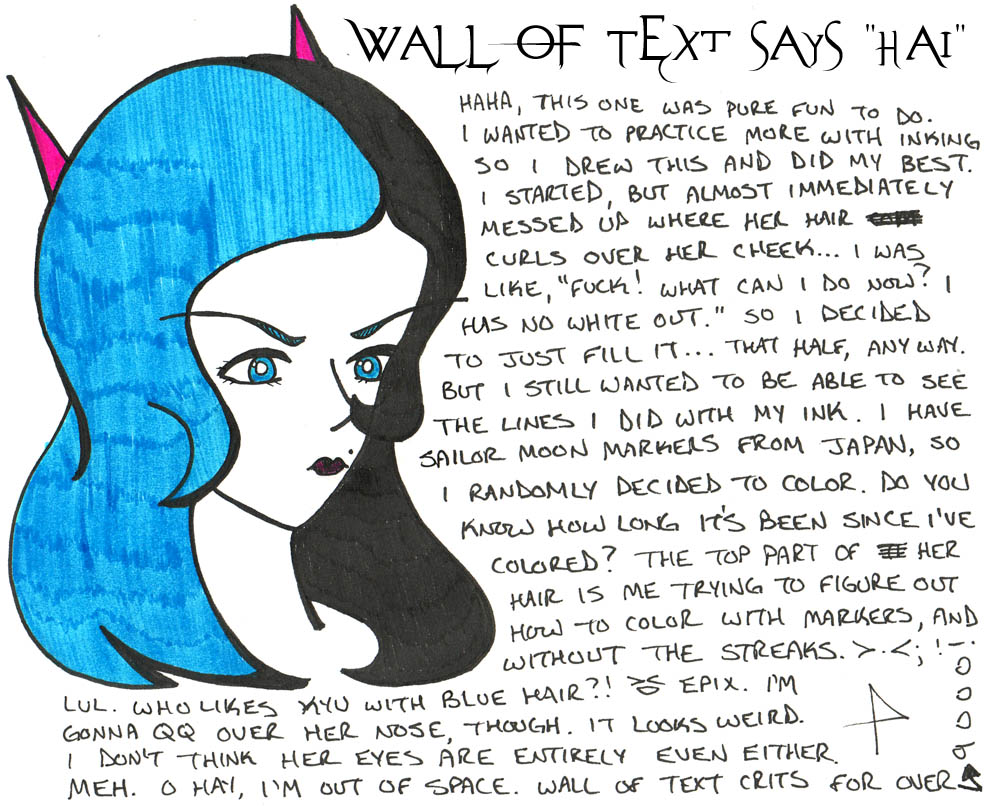 WALL OF TEXT SAYS "HAI"
HAHA, THIS ONE WAS PURE FUN TO DO.
I WANTED TO PRACTICE MORE WITH INKING
SO I DREW THIS AND DID MY BEST.
I STARTED, BUT ALMOST IMMEDIATELY
MESSED UP WHERE HER HAIR
CURLS OVER HER CHEEK... I WAS
LIKE, "FUCK! WHAT CAN I DO NOW? I
HAS NO WHITE OUT." SO I DECIDED
TO JUST FILL IT... THAT HALF, ANYWAY.
BUT I STILL WANTED TO BE ABLE TO SEE
THE LINES I DID WITH MY INK. I HAVE
SAILOR MOON MARKERS FROM JAPAN, SO
I RANDOMLY DECIDED TO COLOR. DO YOU
KNOW HOW LONG IT'S BEEN SINCE I'VE
COLORED? THE TOP PART OF HER
HAIR IS ME TRYING TO FIGURE OUT
HOW TO COLOR WITH MARKERS, AND
WITHOUT THE STREAKS. >.<; !-.
LUL. WHO LIKES KYU WITH BLUE HAIR?! EPIX. I'M
GONNA QQ OVER HER NOSE, THOUGH. IT LOOKS WEIRD.
I DON'T THINK HER EYES ARE ENTIRELY EVEN EITHER.
MEH. O HAY, I'M OUT OF SPACE. WALL OF TEXT CRITS FOR OVER